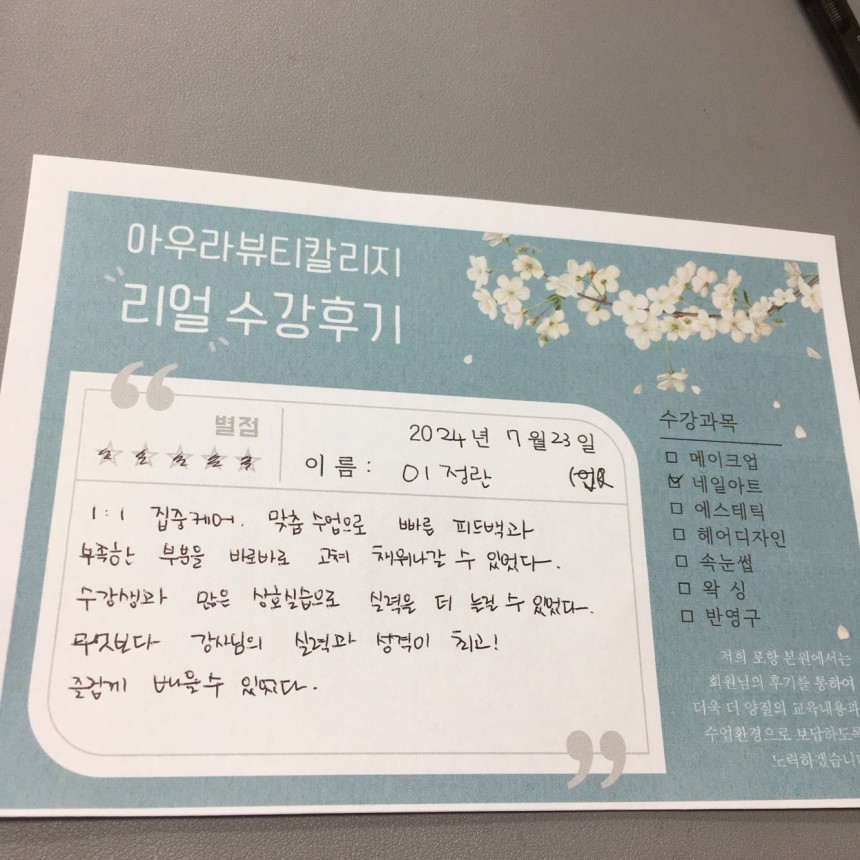 아우라뷰티칼리지
리얼 수강후기
별점
2024년 7월 23일
이 름 : 이정란
1:1 집중케어. 맞춤 수업으로 빠른 피드백과
부족한 부분을 바로바로 고쳐 채워나갈 수 있었다.
수강생과 많은 상호실습으로 실력을 더 늘릴 수 있었다.
무엇보다 강사님의 실력과 성격이 최고!
즐겁게 배울 수 있었다.
수강과목
메이크업
네일아트
에스테틱
헤어디자인
속눈썹
왁싱
반영구
저희 포항 본원에서는
회원님의 후기를 통하여
더욱 더 양질의 교육내용과
수업환경으로 보답하도록
노력하겠습니다